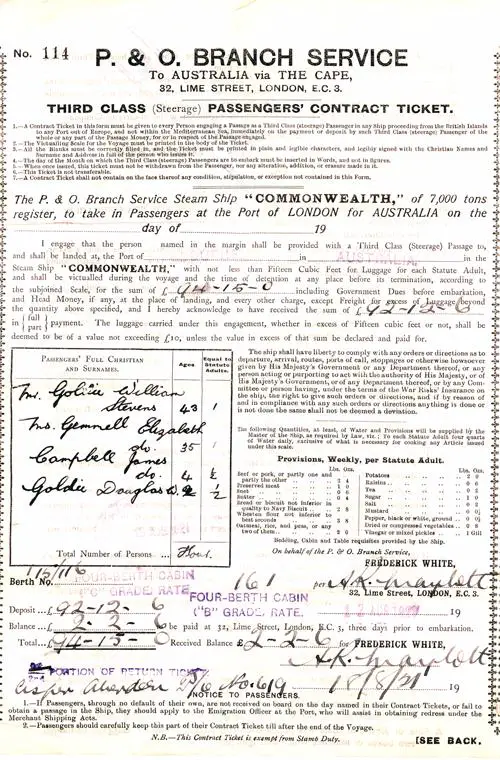 No. 114
P. & O. BRANCH SERVICE
To AUSTRALIA via THE CAPE,
32, LIME STREET, LONDON, E.C. 3.
THIRD CLASS (Steerage) PASSENGERS' CONTRACT TICKET.
1.—A Contract Ticket in this form must be given to every Person engaging a Passage as a Third Class (steerage) Passenger in any Ship proceeding from the British Islands
to any Port out of Europe, and not within the Mediterranean Sea, immediately on the payment or deposit by such Third Class (steerage) Passenger of the
whole or any part of the Passage Money, for or in respect of the Passage engaged.
2.—The Victualling Scale for the Voyage must be printed in the body of the Ticket.
3.—All the Blanks must be correctly filled in, and the Ticket must be printed in plain and legible characters, and legibly signed with the Christian Names and
Surname and Address in full of the person who issues it.
4.—The day of the Month on which the Third Class (steerage) Passengers are to embark must be inserted in Words, and not in figures.
5.—When once issued, this ticket must not be withdrawn from the Passenger, nor any alteration, addition, or erasure made in it.
6.—This Ticket is not transferable.
7.—A Contract Ticket shall not contain on the face thereof any condition, stipulation, or exception not contained in this Form.
The P. & O. Branch Service Steam Ship "COMMONWEALTH," of 7,000 tons
register, to take in Passengers at the Port of LONDON for AUSTRALIA on the
day of 19
I engage that the person named in the margin shall be provided with a Third Class (Steerage) Passage to,
and shall be landed at, the Port of in AUSTRALIA, in the
Steam Ship "COMMONWEALTH," with not less than Fifteen Cubic Feet for Luggage for each Statute Adult,
and shall be victualled during the voyage and the time of detention at any place before its termination, according to
the subjoined Scale, for the sum of £ 94-15-0 including Government Dues before embarkation,
and Head Money, if any, at the place of landing, and every other charge, except Freight for excess of Luggage beyond
the quantity above specified, and I hereby acknowledge to have received the sum of £92-12-6
in {full part} payment. The luggage carried under this engagement, whether in excess of Fifteen cubic feet or not, shall be
deemed to be of a value not exceeding £10, unless the value in excess of that sum be declared and paid for.
PASSENGERS' FULL CHRISTIAN AND SURNAMES. Ages Equal to Statute Adults.
Mr. Goldie William
Stevens 43 1
Mrs. Gemmell Elizabeth
do. 35 1
Campbell James
do. 4 ½
Goldie Douglas W. 2 ½
Total Number of Persons ... Four.
The ship shall have liberty to comply with any orders or directions as to
departure, arrival, routes, ports of call, stoppages or otherwise howsoever
given by His Majesty's Government or any Department thereof, or any
person acting or purporting to act with the authority of His Majesty, or of
His Majesty's Government, or of any Department thereof, or by any Com-
mittee or person having, under the terms of the War Risks' Insurance on
the ship, the right to give such orders or directions, and if by reason of
and in compliance with any such orders or directions anything is done or
is not done the same shall not be deemed a deviation.
The following Quantities, at least, of Water and Provisions will be supplied by the
Master of the Ship, as required by Law, viz.: To each Statute Adult four quarts
of Water daily, exclusive of what is necessary for cooking any Articles issued
under this scale.
Provisions, Weekly, per Statute Adult.
Lbs. Ozs.
Beef or pork, or partly one and
partly the other 2 4
Preserved meat 1 0
Suet 0 6
Butter 0 4
Bread or biscuit not inferior in
quality to Navy Biscuit 2 8
Wheaten flour not inferior to
best seconds 3 8
Oatmeal, rice, and peas, or any
two of them 2 0
Lbs. Ozs.
Potatoes 2 0
Raisins 0 6
Tea 0 2
Sugar 1 0
Salt 0 2
Mustard 0 0½
Pepper, black or white, ground 0 0½
Dried or compressed vegetables 0 8
Vinegar or mixed pickles 1 Gill
Bedding, Cabin and Table requisites provided by the Ship.
On behalf of the P. & O. Branch Service,
FREDERICK WHITE,
Berth No. 115/116 161 per A.K. Marplott
32, Lime Street, LONDON, E.C. 3.
FOUR-BERTH CABIN
"C" GRADE, RATE.
FOUR-BERTH CABIN
"B" GRADE, RATE.
Deposit ...£92-12-6 19
Balance ... 2-2-6 be paid at 32, Lime Street, London, E.C. 3, three days prior to embarkation.
Total...£94-15-0 Received Balance £2-2-6 for FREDERICK WHITE,
A.K. Marplott
PORTION OF RETURN TICKET
No. 619 18/8/21 19
NOTICE TO PASSENGERS.
1.—If Passengers, through no default of their own, are not received on board on the day named in their Contract Tickets, or fail to
obtain a passage in the Ship, they should apply to the Emigration Officer at the Port, who will assist in obtaining redress under the
Merchant Shipping Acts.
2.—Passengers should carefully keep this part of their Contract Ticket till after the end of the Voyage.
N.B.—This Contract Ticket is exempt from Stamp Duty.
[SEE BACK.